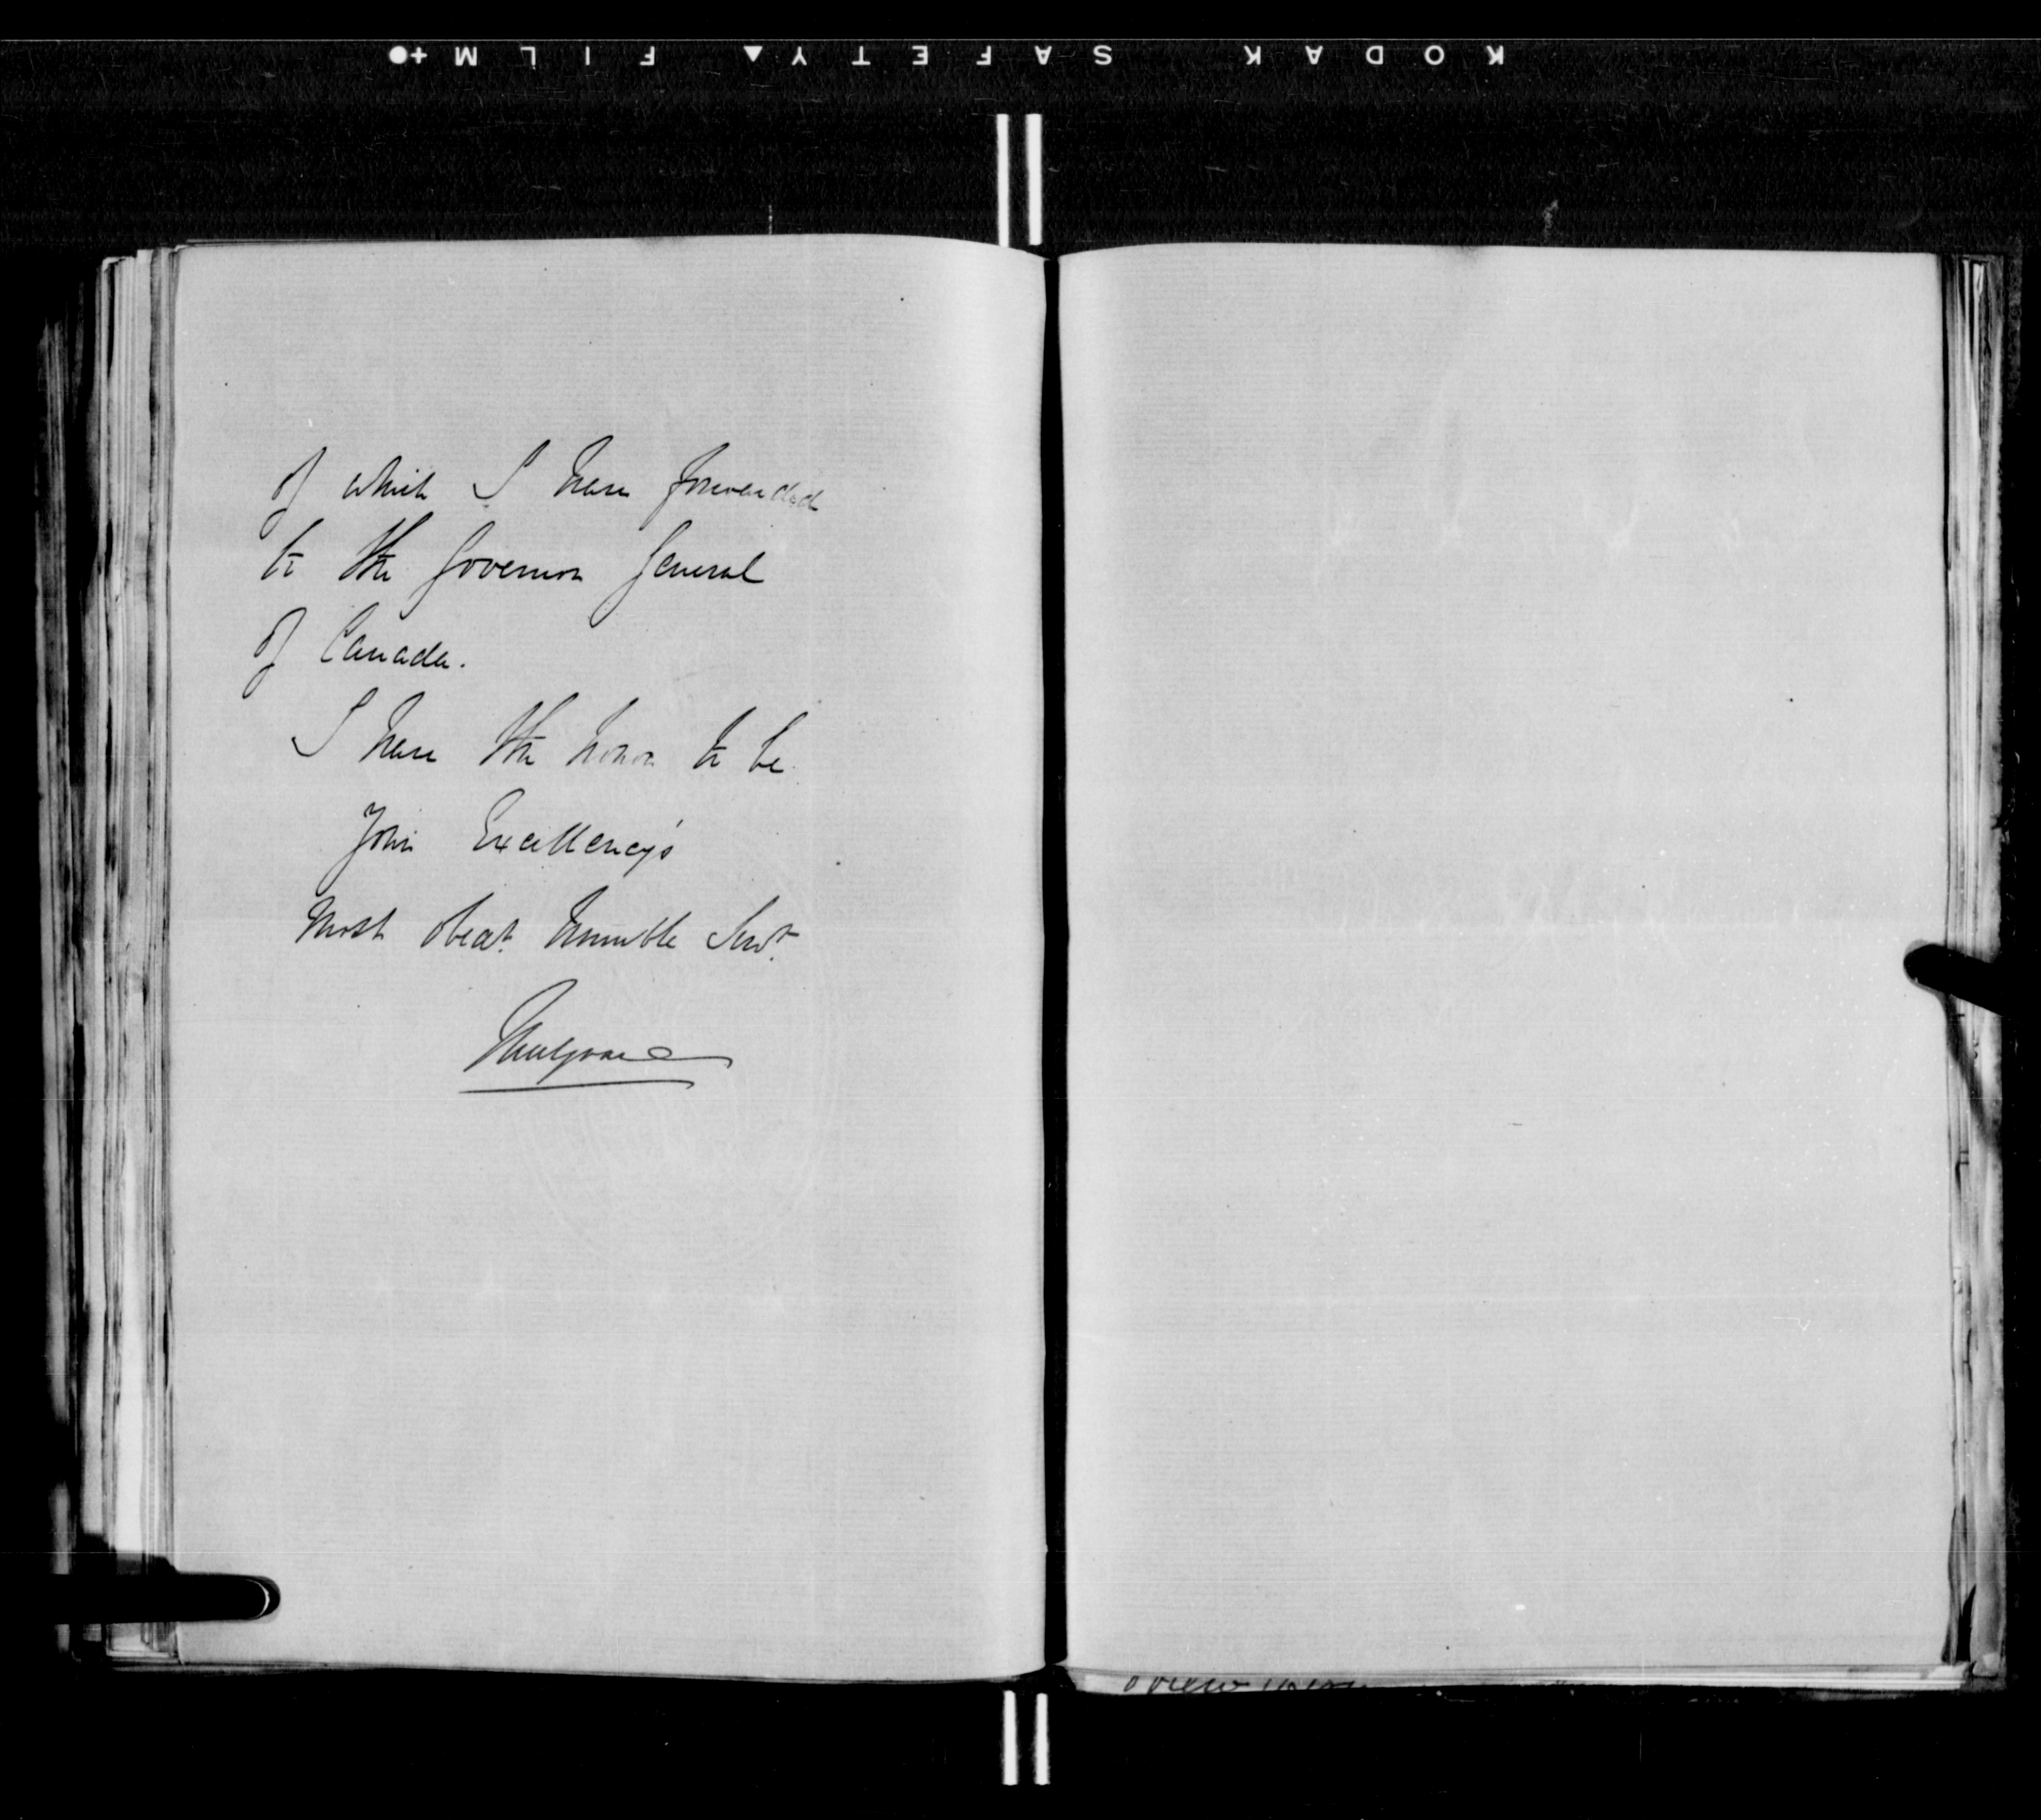 KODAK SAFETY FILM
of which I have forwarded
to the Governor General
of Canada.
I have the honor to be
Your Excellency's
Most obedt. humble Servt.
Mulgrave